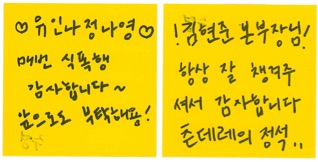 ♡유인나정나영♡
매번 식폭행
감사합니다~
앞으로도 부탁해용!
!김현준 본부장님!
항상 잘 챙겨주
셔서 감사합니다
츤데레의 정석,,